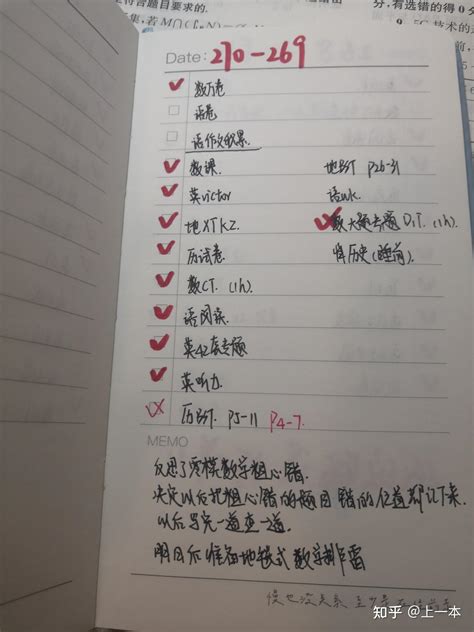 合题目要求的.
集,若M∩(
分,有选错的得0分
Date: 270-269
数J卷
语卷
语作文积累
数课 地BST P26-31
英victor 语wk.
地XTKZ. 数大题专题 D.T. (1h)
历试卷 背历史(睡前).
数CT. (1h)
语阅读
英42套专题
英听力
历BST. P5-11 P4-7.
MEMO
反思了零模数学粗心错.
决定以后把粗心错的题目 错的位置都记下来
以后写完一道查一道.
明日后准备地 模式 数学制作
慢也没关系
知乎 @上一本